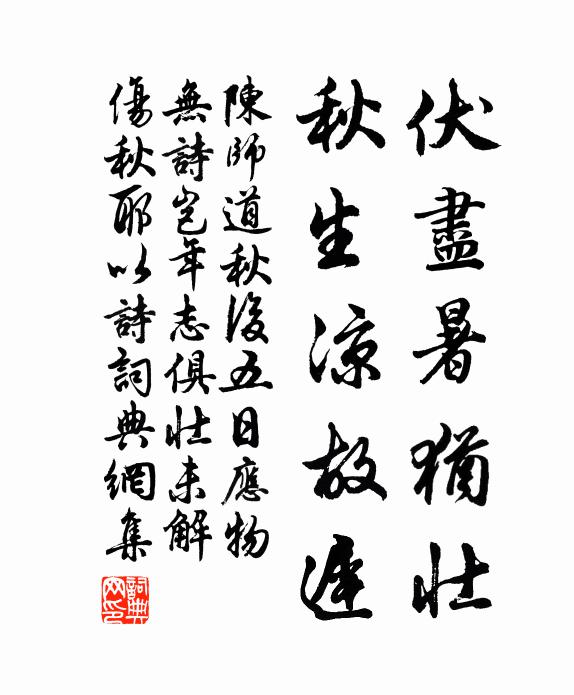 伏盡暑猶壯
秋生涼故遲
陳師道秋後五日應物
無詩豈年志俱壯未解
傷秋耶以詩詞典網集
詞典
网印